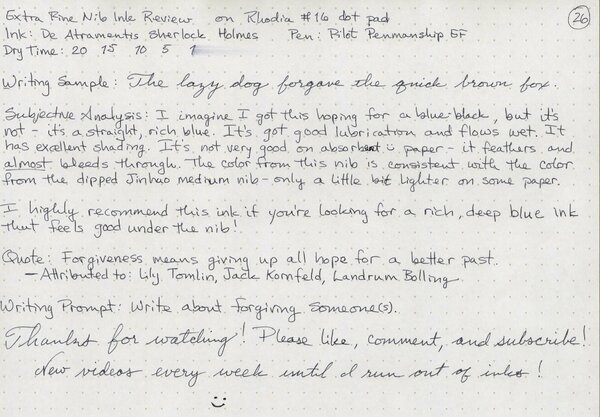 Extra Fine Nib Ink Review on Rhodia #16 dot pad
26
Ink: De Atramentis Sherlock Holmes Pen: Pilot Penmanship EF
Dry Time: 20 15 10 5 1
Writing Sample: The lazy dog forgave the quick brown fox.
Subjective Analysis: I imagine I got this hoping for a blue-black, but it's
not - it's a straight, rich blue. It's got good lubrication and flows wet. It
has excellent shading. It's not very good on absorbent paper - it feathers and
almost bleeds through. The color from this nib is consistent with the color
from the dipped Jinhao medium nib - only a little bit lighter on some paper.
I highly recommend this ink if you're looking for a rich, deep blue ink
that feels good under the nib!
Quote: Forgiveness means giving up all hope for a better past.
- Attributed to: Lily Tomlin, Jack Kornfeld, Landrum Bolling
Writing Prompt: Write about forgiving someone(s).
Thanks for watching! Please like, comment, and subscribe!
New videos every week until I run out of inks!